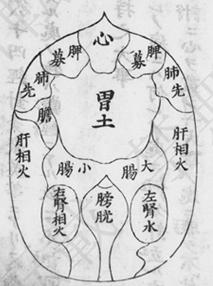 心
脾募
脾募
肺先
肺先
胃土
膽
肝相火
肝相火
大腸
小腸
膀胱
左腎水
右腎相火